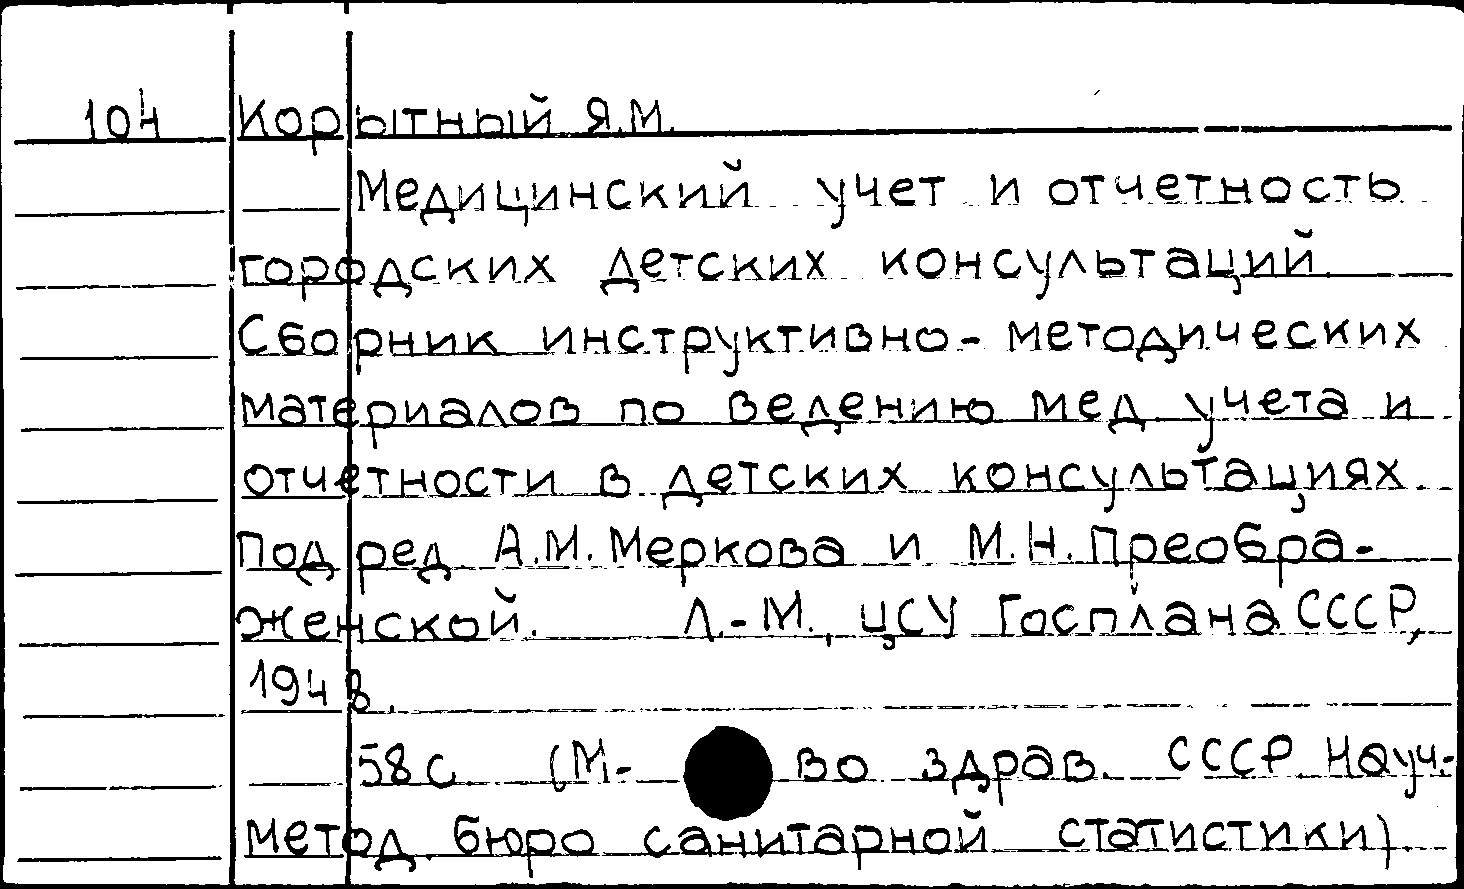 104 Корытный Я.М.
Медицинский учет и отчетность
городских детских консультаций.
Сборник инструктивно-методических
материалов по ведению мед. учета и
отчетности в детских консультациях.
Под ред. А.М. Меркова и М.Н. Преобра-
женской. Л.-М., ЦСУ Госплана СССР,
1948.
58 с. (М-во здрав. СССР. Науч.-
метод. бюро санитарной статистики).